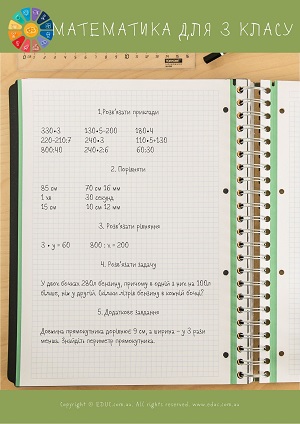 МАТЕМАТИКА ДЛЯ 3 КЛАСУ
1.Розв'язати приклади
330•3 130•5-200 180•4
220-210:7 240•3 110•5+130
800:40 240•2:6 60:30
2. Порівняти
85 см 70 см 16 мм
1 хв 30 секунд
15 см 10 см 12 мм
3. Розв'язати рівняння
3 • y = 60 800 : x = 200
4. Розв'язати задачу
У двох бочках 280л бензину, причому в одній з них на 100л
більше, ніж у другій. Скільки літрів бензину в кожній бочці?
5. Додаткове завдання
Довжина прямокутника дорівнює 9 см, а ширина – у 3 рази
менша. Знайдіть периметр прямокутника.
Copyright © EDUI.com.ua. All rights reserved. www.edui.com.ua